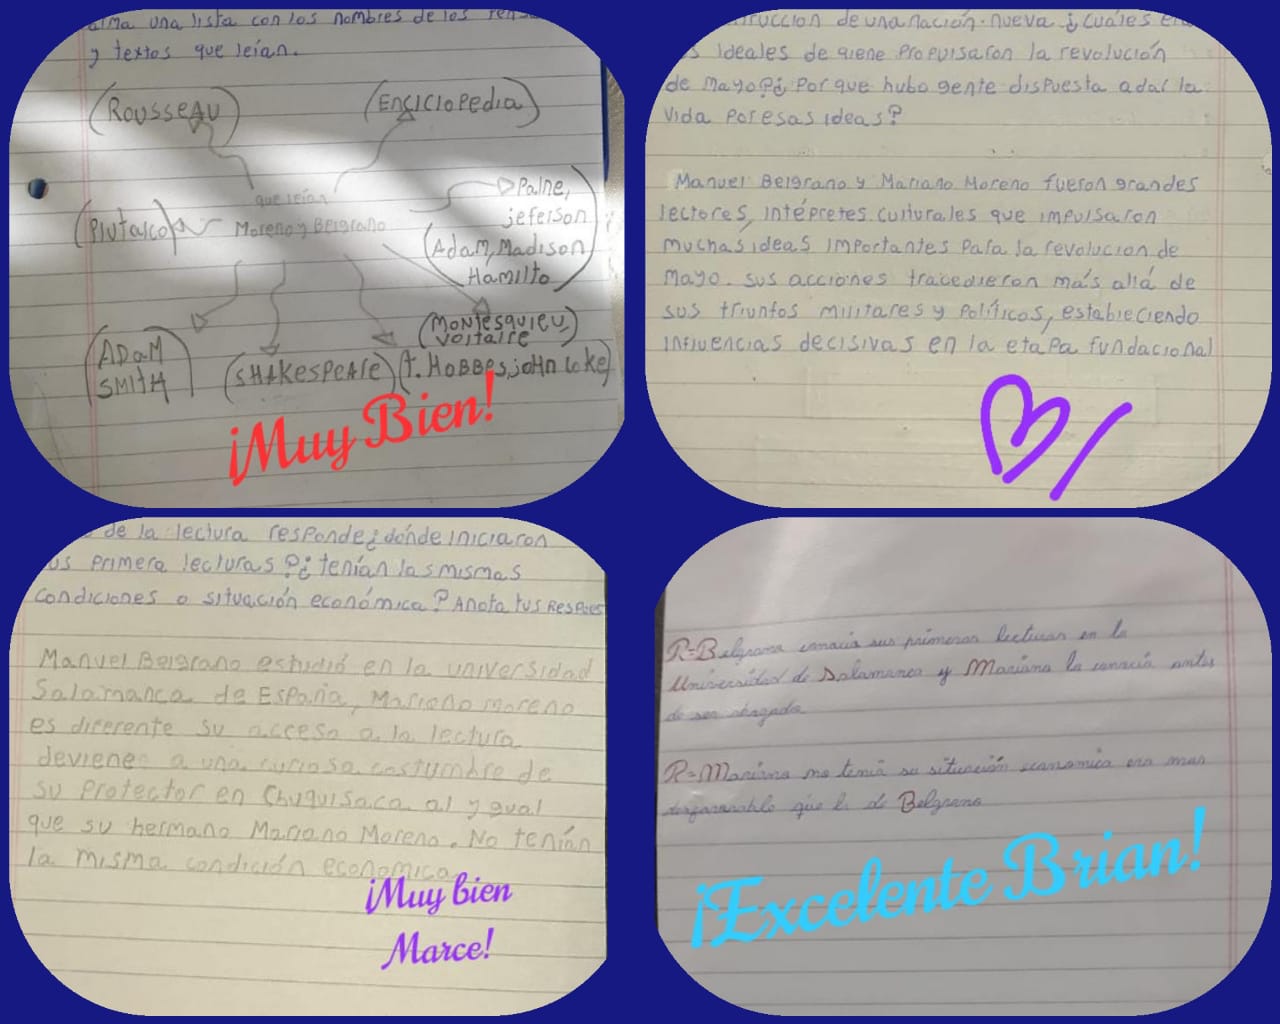 arma una lista con los nombres de los
y textos que leían.
(Rousseau)
(Enciclopedia)
que leían
Moreno y Belgrano
(Plutarco)
Paine,
jeferson
(Adam, Madison
Hamilto)
(ADaM
SMitH)
(SHAkespeare)
(Montesquieu,
Voltaire)
(t. HOBBES, joHn Loke)
¡Muy Bien!
de una nación nueva ¿cuáles
ideales de qiene propulsaron la revolución
de Mayo?¿ Por que hubo gente dispuesta a dar la
vida por esas ideas?
Manuel Belgrano y Mariano Moreno fueron grandes
lectores, intépretes culturales que impulsaron
muchas ideas importantes para la revolucion de
Mayo. sus acciones tracedieron más allá de
sus triunfos militares y políticos, estableciendo
influencias decisivas en la etapa fundacional
de la lectura responde¿dónde iniciaron
primera lecturas?¿tenían las mismas
condiciones o situación económica? Anota tus
Manuel Belgrano estudió en la universidad
Salamanca de España, Mariano moreno
es diferente su acceso a la lectura
deviene a una curiosa costumbre de
su protector en Chuquisaca al ygual
que su hermano Mariano Moreno. No tenían
la misma condición economica
¡Muy bien
Marce!
R=Belgrano conocia sus primeras lecturas en la
Universidad de Salamanca y Mariano la conocia antes
de ser abogado
R=Mariano no tenia su situación economica era mas
desfavorable que la de Belgrano
¡Excelente Brian!